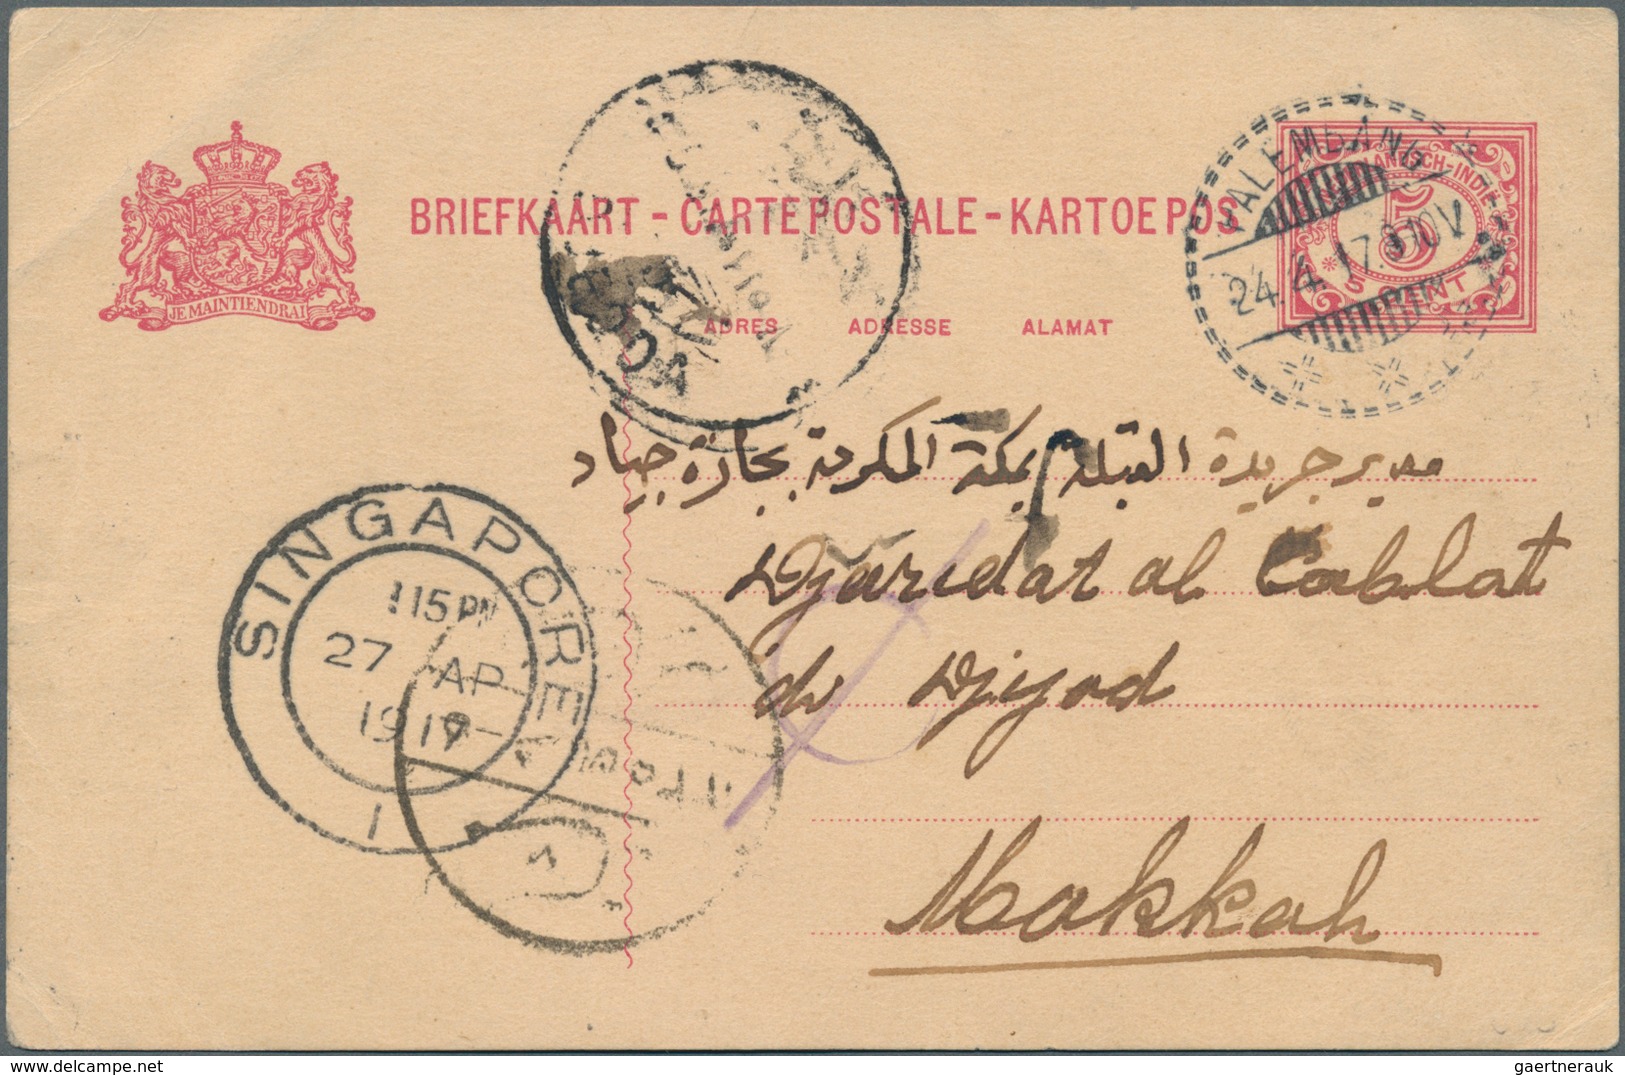 BRIEFKAART - CARTE POSTALE - KARTOE POS
JE MAINTIENDRAI
ADRES ADRESSE ALAMAT
PALEMBANG
24.4.17.9 10V
5
CENT
مدير جريدة القبلة بمكة المكرمة بحارة جياد
Djaridat al Cablat
di Djijad
Makkah
SINGAPORE
115 PM
27 AP
1917
1
gaertnerauk